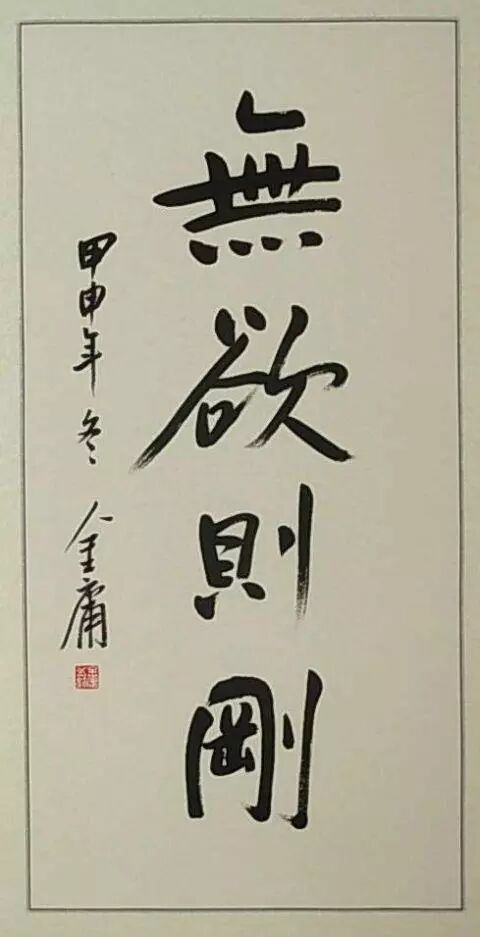 無欲則剛
甲申年冬 金庸